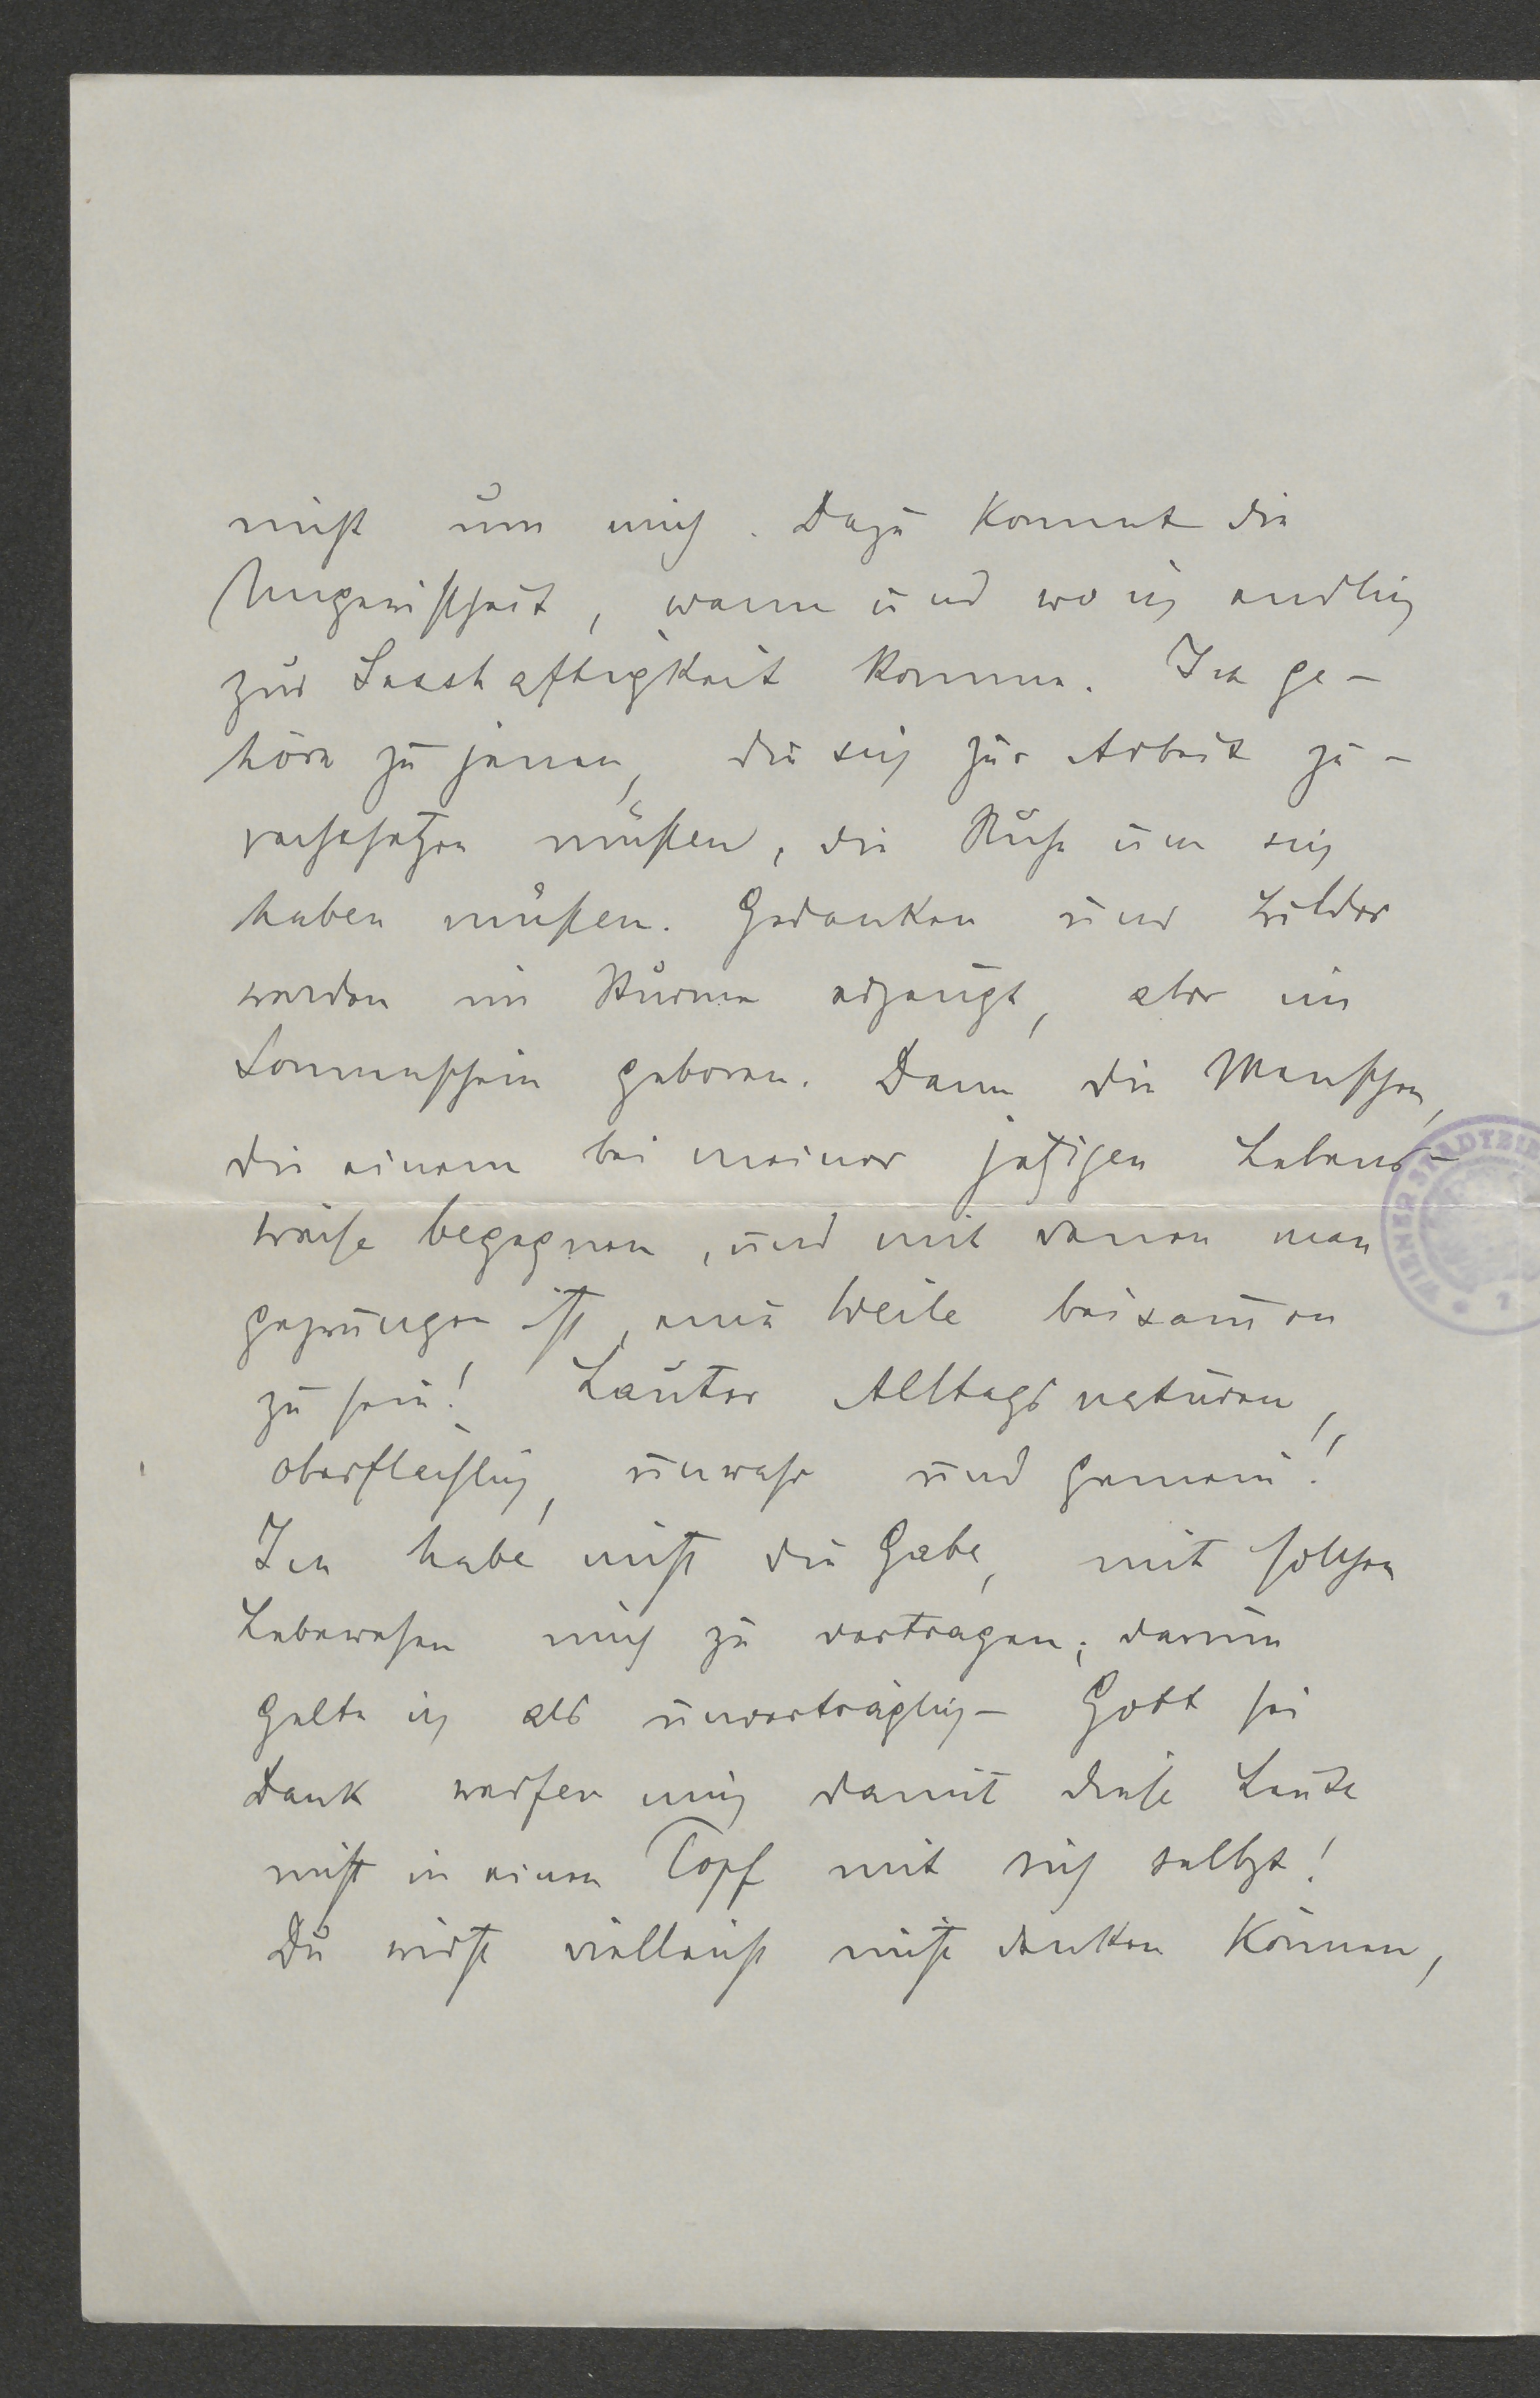 nicht um mich. Dazu kommt die
Ungewißheit, wann und wo ich endlich
zur Sesshaftigkeit komme. Ich ge-
höre zu jenen, die sich zur Arbeit zu-
rechtsetzen müßen, die Ruhe um sich
haben müßen. Gedanken und Bilder
werden im Sturme erzeugt, aber im
Sonnenschein geboren. Dann die Menschen,
die einem bei meiner jetzigen Lebens-
weise begegnen, und mit denen man
gezwungen ist, eine Weile beisam̅en
zu sein! Lauter Alltagsnaturen,
oberflächlich, unwahr und gemein!
Ich habe nicht die Gabe, mit solchen
Lebewesen mich zu vertragen; darum
gelte ich als unverträglich – Gott sei
Dank werfen mich damit diese Leute
nicht in einen Topf mit sich selbst!
Du wirst vielleicht nicht denken können,
WIENER STADTBI